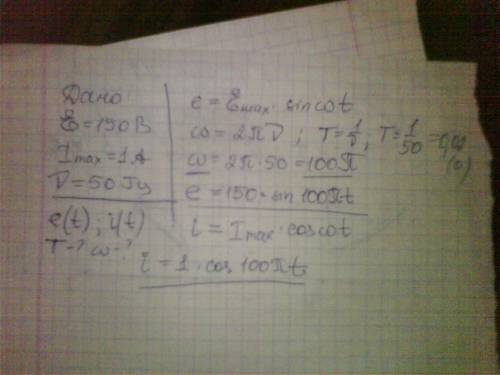 Дано:
Ɛ = 150 В
I max = 1 А
ν = 50 Гц
e(t); i(t)
T - ? ω - ?
e = Ɛmax · sin ωt
ω = 2πν; T = 1/ν; T = 1/50 = 0,02 (с)
ω = 2π · 50 = 100π
e = 150 · sin 100πt
i = Imax · cos ωt
i = 1 · cos 100πt